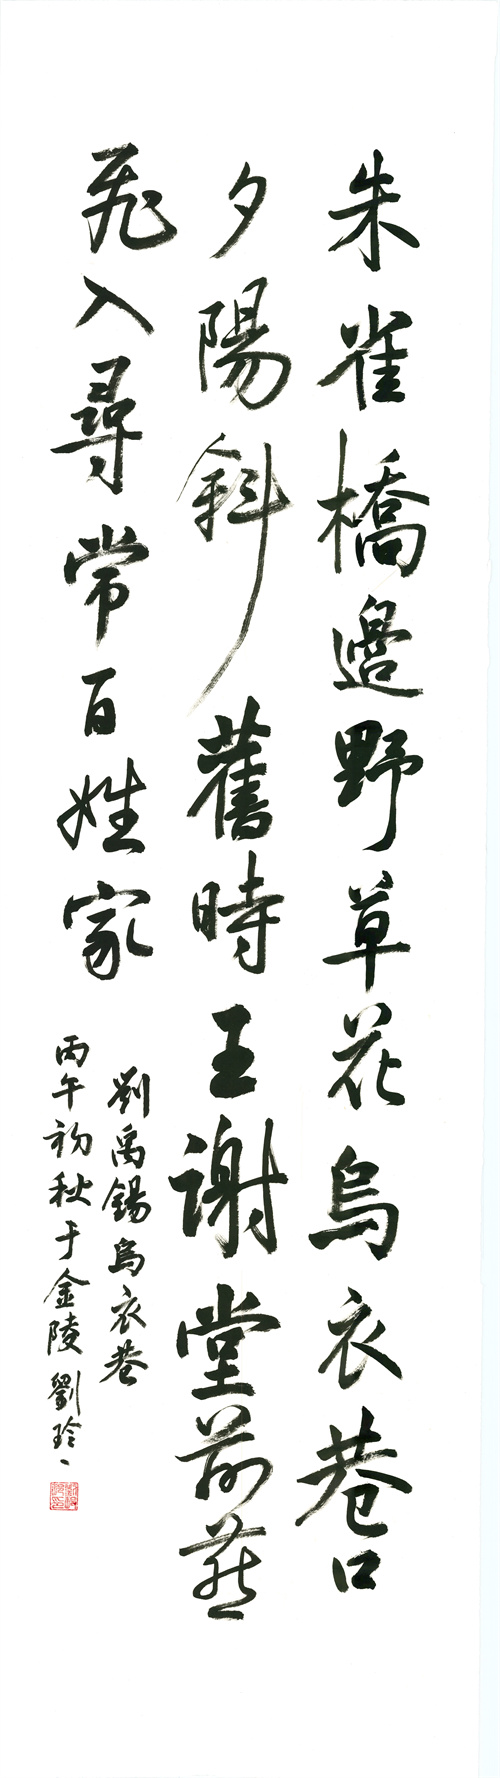 朱雀橋邊野草花烏衣巷口
夕陽斜舊時王謝堂前燕
飛入尋常百姓家
劉禹錫烏衣巷
丙午初秋于金陵劉玲玲